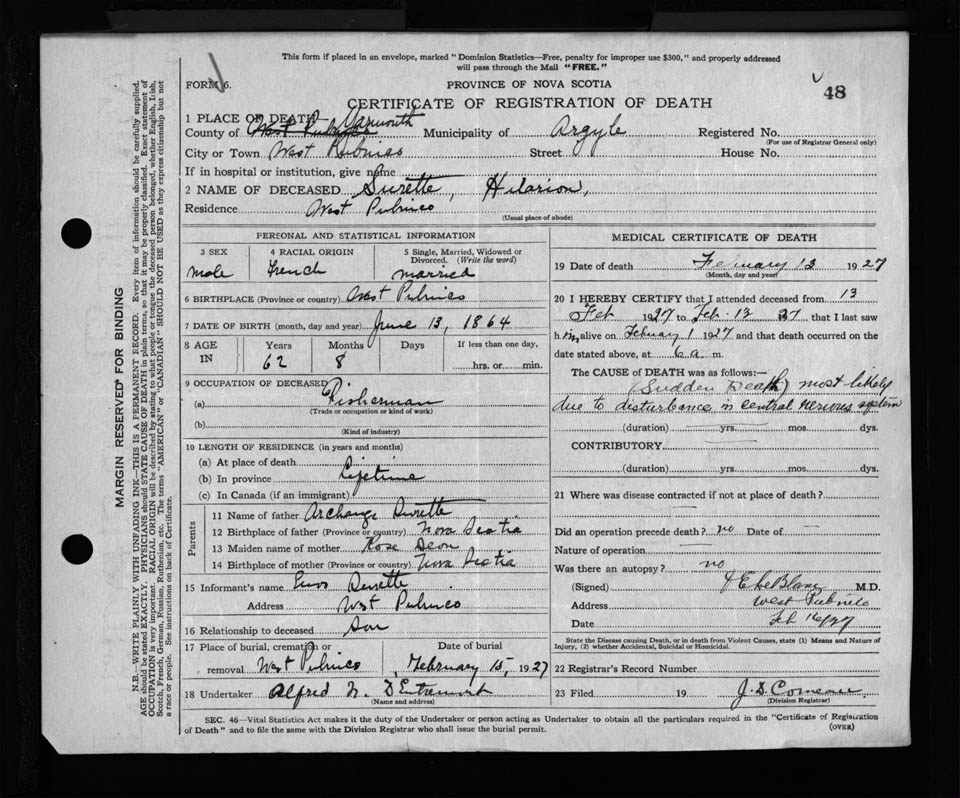 This form if placed in an envelope, marked "Dominion Statistics—Free, penalty for improper use $300," and properly addressed
will pass through the Mail "FREE."
FORM 6.
PROVINCE OF NOVA SCOTIA
48
CERTIFICATE OF REGISTRATION OF DEATH
1 PLACE OF DEATH Yarmouth
County of West Pubnico Municipality of Argyle Registered No.
(For use of Registrar General only)
City or Town West Pubnico Street House No.
If in hospital or institution, give name
2 NAME OF DECEASED Surette, Hilarion,
Residence West Pubnico
(Usual place of abode)
PERSONAL AND STATISTICAL INFORMATION
3 SEX 4 RACIAL ORIGIN 5 Single, Married, Widowed or
Divorced. (Write the word)
Male French Married
6 BIRTHPLACE (Province or country) West Pubnico
7 DATE OF BIRTH (month, day and year) June 13, 1864
8 AGE Years Months Days If less than one day,
IN 62 8 hrs. or min.
9 OCCUPATION OF DECEASED
(a) Fisherman
(Trade or occupation or kind of work)
(b)
(Kind of industry)
10 LENGTH OF RESIDENCE (in years and months)
(a) At place of death
(b) In province Lifetime
(c) In Canada (if an immigrant)
Parents
11 Name of father Archange Surette
12 Birthplace of father (Province or country) Nova Scotia
13 Maiden name of mother Rose Deon
14 Birthplace of mother (Province or country) Nova Scotia
15 Informant's name Surette
Address West Pubnico
16 Relationship to deceased Son
17 Place of burial, cremation or Date of burial
removal West Pubnico February 15, 1927
18 Undertaker Alfred N. D'Entremont
(Name and address)
MEDICAL CERTIFICATE OF DEATH
19 Date of death February 13 1927
(Month, day and year)
20 I HEREBY CERTIFY that I attended deceased from 13
Feb 1927 to Feb. 13 27 that I last saw
him alive on February 1 1927 and that death occurred on the
date stated above, at 6 a m.
The CAUSE OF DEATH was as follows:—
(Sudden Death) most likely
due to disturbance in central nervous system
(duration) yrs. mos. dys.
CONTRIBUTORY
(duration) yrs. mos. dys.
21 Where was disease contracted if not at place of death?
Did an operation precede death? no Date of —
Nature of operation —
Was there an autopsy? no
(Signed) LeBlanc M.D.
Address West Pubnico
Date Feb 16/27
State the Disease causing Death, or in death from Violent Causes, state (1) Means and Nature of
Injury, (2) whether Accidental, Suicidal or Homicidal.
22 Registrar's Record Number
23 Filed 19 J.D. Comeau
(Division Registrar)
SEC. 46—Vital Statistics Act makes it the duty of the Undertaker or person acting as Undertaker to obtain all the particulars required in the "Certificate of Registration
of Death" and to file the same with the Division Registrar who shall issue the burial permit.
(OVER)
MARGIN RESERVED FOR BINDING
N.B.—WRITE PLAINLY WITH UNFADING INK—THIS IS A PERMANENT RECORD. Every item of information should be carefully supplied.
AGE should be stated EXACTLY. PHYSICIANS should STATE CAUSE OF DEATH in plain terms, so that it may be properly classified. Exact statement of
OCCUPATION is very important. RACIAL ORIGIN will be described by stating to what people or tongue the deceased person belonged, whether English, Irish,
Scotch, French, German, Russian, Ruthenian, etc. The terms "AMERICAN" or "CANADIAN" SHOULD NOT BE USED as they express citizenship but not
a race or people. See instructions on back of Certificate.